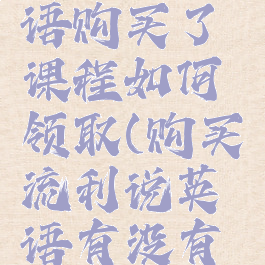 语购买了
课程如何
领取(购买
流利说英
语有没有